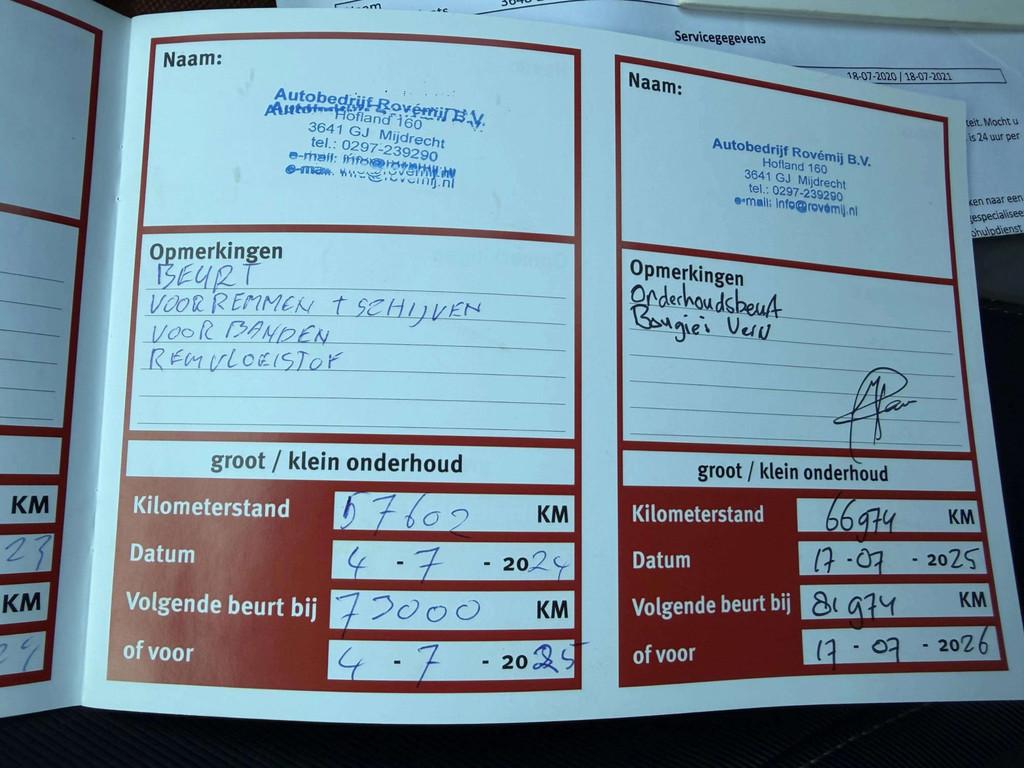 Servicegegevens
18-07-2020 / 18-07-2021
teit. Mocht u
is 24 uur per
ken naar een
gespecialisee
ohulpdienst
KM
23
KM
24
Naam:
Autobedrijf Rovémij B.V.
Hofland 160
3641 GJ Mijdrecht
tel.: 0297-239290
e-mail: info@rovemij.nl
Opmerkingen
BEURT
VOORREMMEN + SCHIJVEN
VOOR BANDEN
REMVLOEISTOF
groot / klein onderhoud
Kilometerstand 57602 KM
Datum 4 - 7 - 2024
Volgende beurt bij 73000 KM
of voor 4 - 7 - 2025
Naam:
Autobedrijf Rovémij B.V.
Hofland 160
3641 GJ Mijdrecht
tel.: 0297-239290
e-mail: info@rovémij.nl
Opmerkingen
Onderhoudsbeurt
Bougies Verv
groot / klein onderhoud
Kilometerstand 66974 KM
Datum 17-07 - 2025
Volgende beurt bij 81974 KM
of voor 17 - 07 - 2026